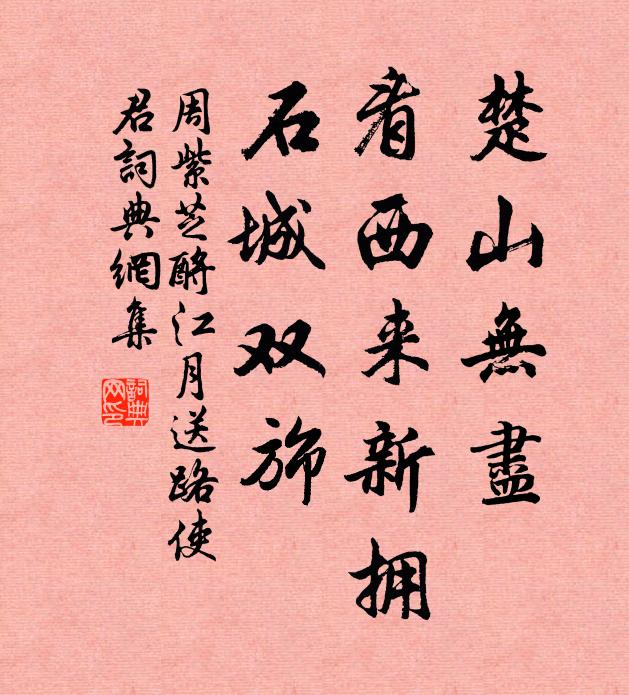 楚山無盡
看西来新拥
石城双旆
周紫芝酹江月送路使
君詞典網集
詞典
网印